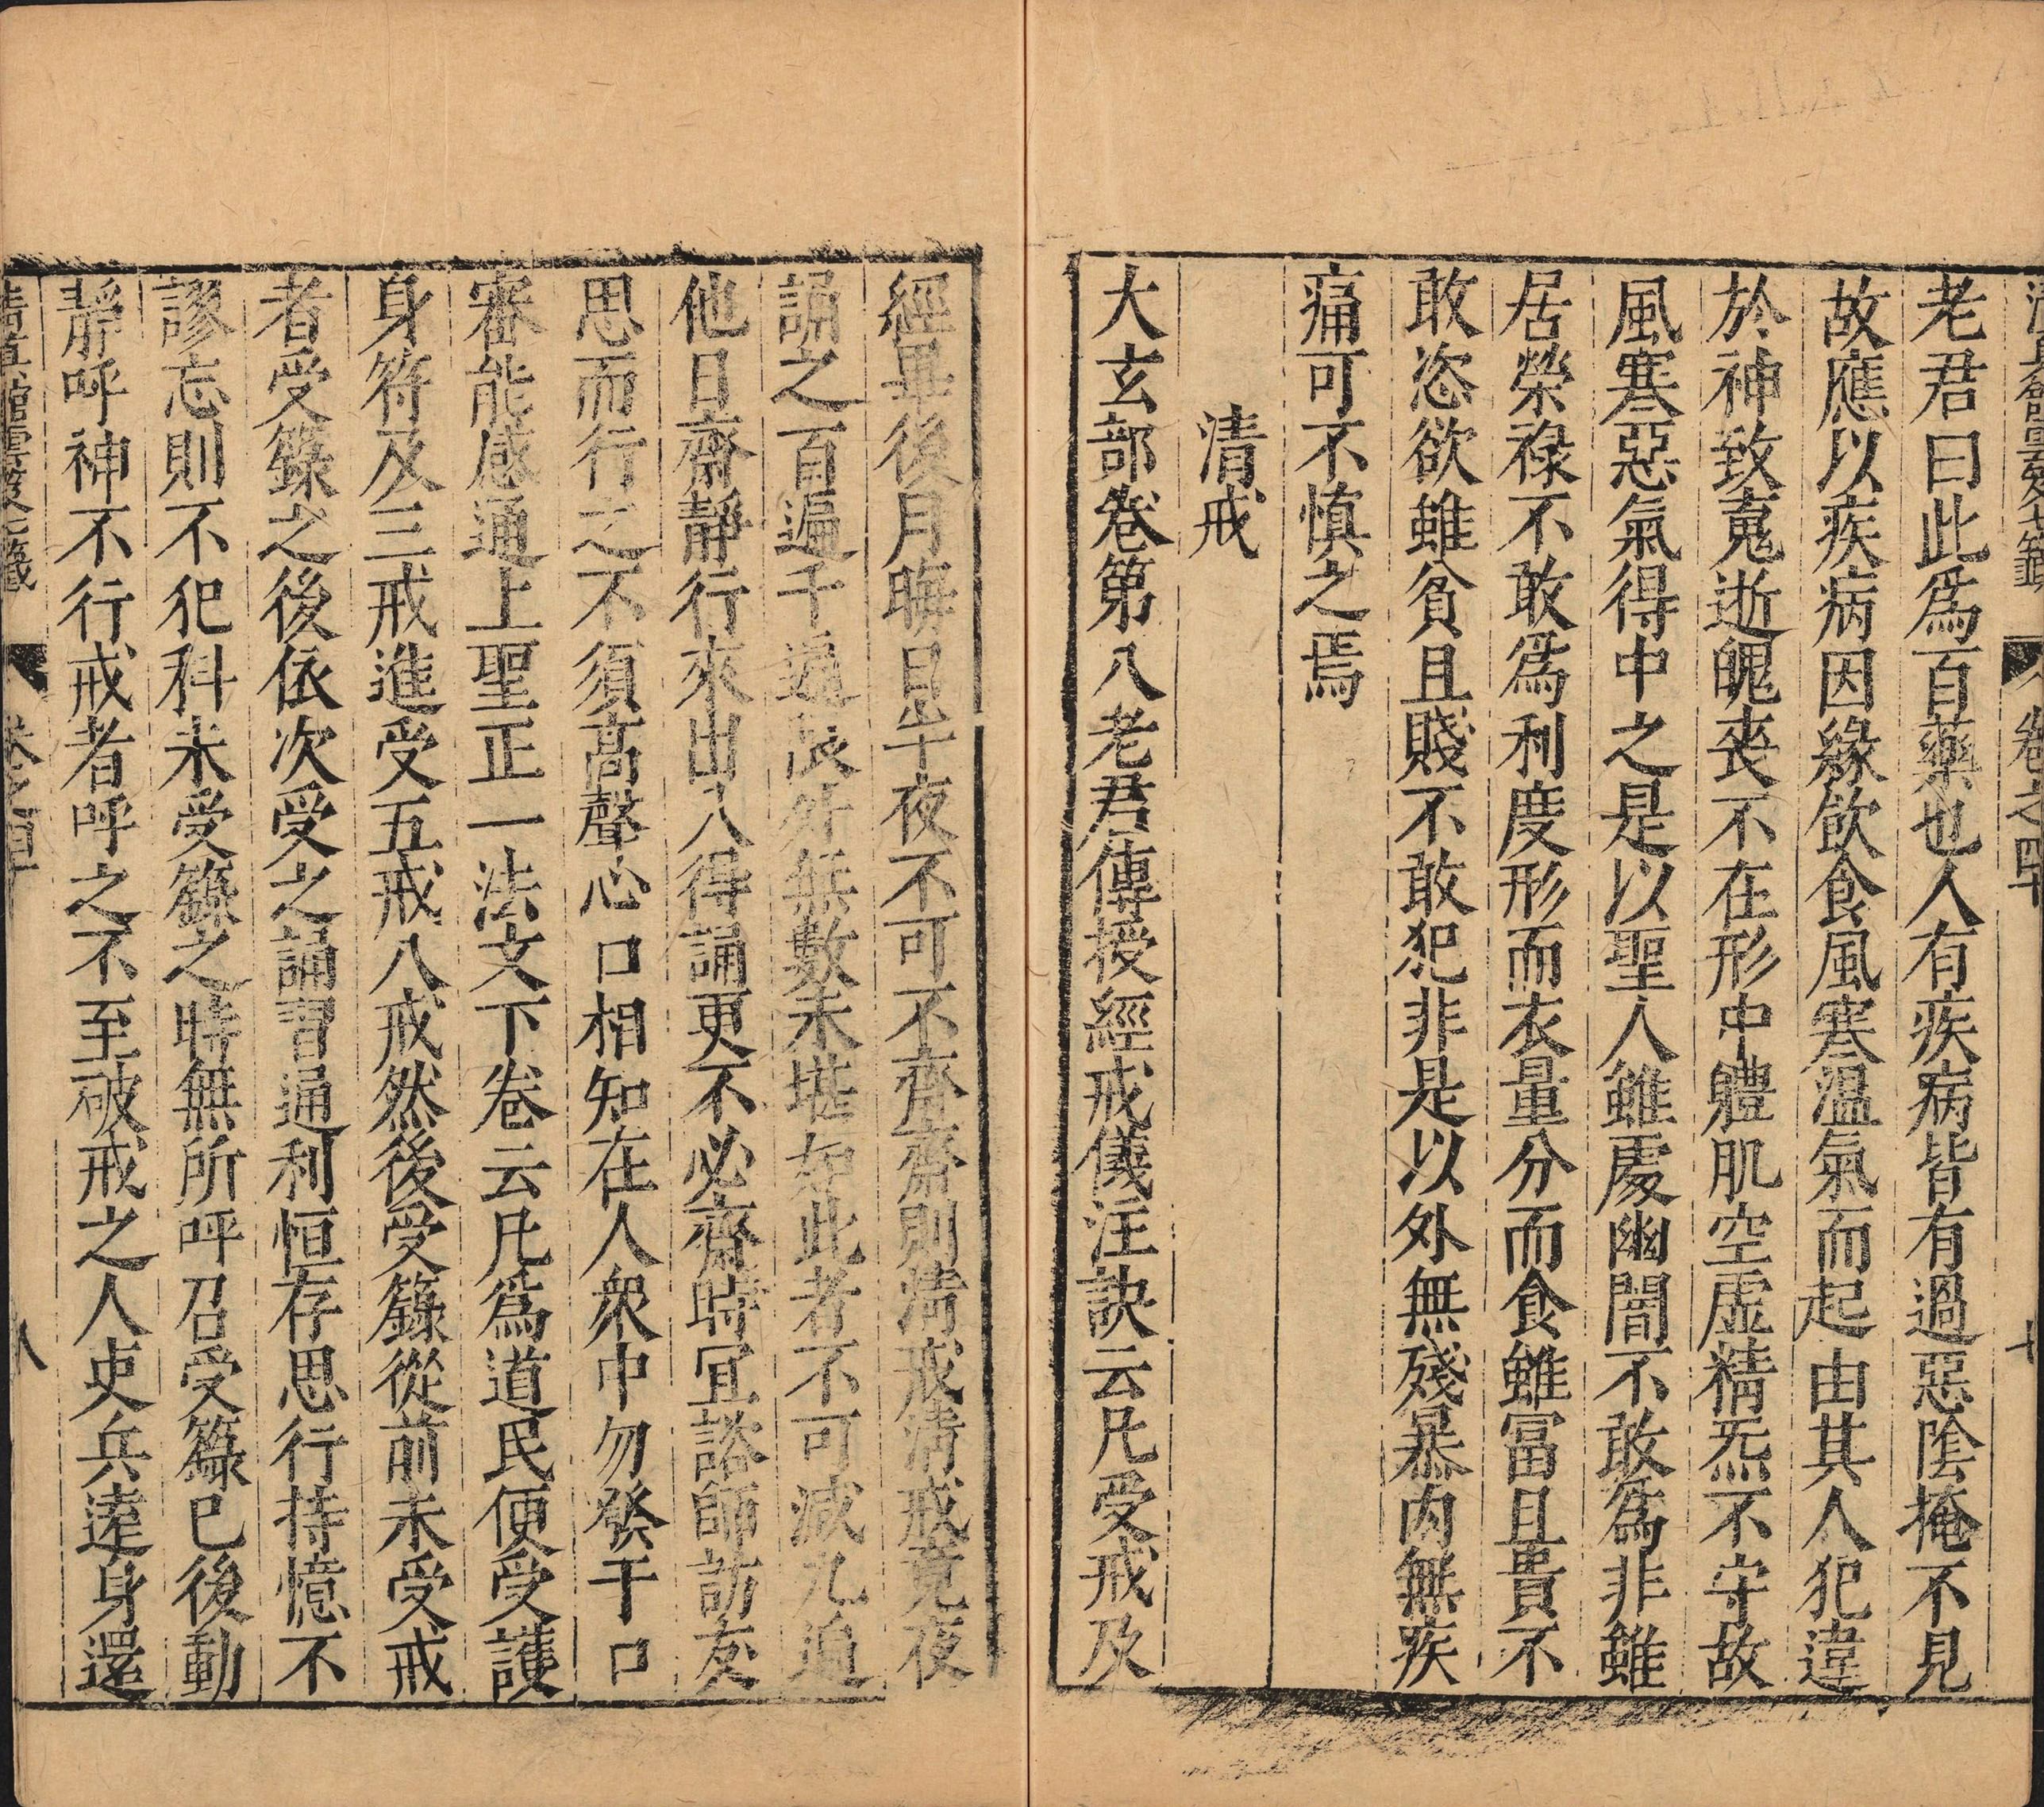 老君曰此爲百藥也人有疾病皆有過惡陰掩不見
故應以疾病因緣飲食風寒溫氣而起由其人犯違
於神致䰟逝魄喪不在形中體肌空虛精炁不守故
風寒惡氣得中之是以聖人雖處幽闇不敢爲非雖
居榮祿不敢爲利度形而衣量分而食雖冨且貴不
敢恣欲雖貧且賤不敢犯非是以外無殘暴內無疾
痛可不慎之焉
清戒
大玄部卷第八老君傳授經戒儀注訣云凡受戒及
經畢後月晦日半夜不可不齋齋則清戒清戒竟夜
誦之百遍千遍限外無數未堪如此者不可減九過
他日齋靜行來出入得誦更不必齋時宜諮師訪友
思而行之不須高聲心口相知在人衆中勿發干口
審能感通上聖正一法文下卷云凡爲道民便受護
身符及三戒進受五戒八戒然後受籙從前未受戒
者受籙之後依次受之誦習通利恒存思行持憶不
謬忘則不犯科未受籙之時無所呼召受籙已後動
靜呼神不行戒者呼之不至破戒之人吏兵遠身還
清眞館雲笈七籤 卷之四十 八